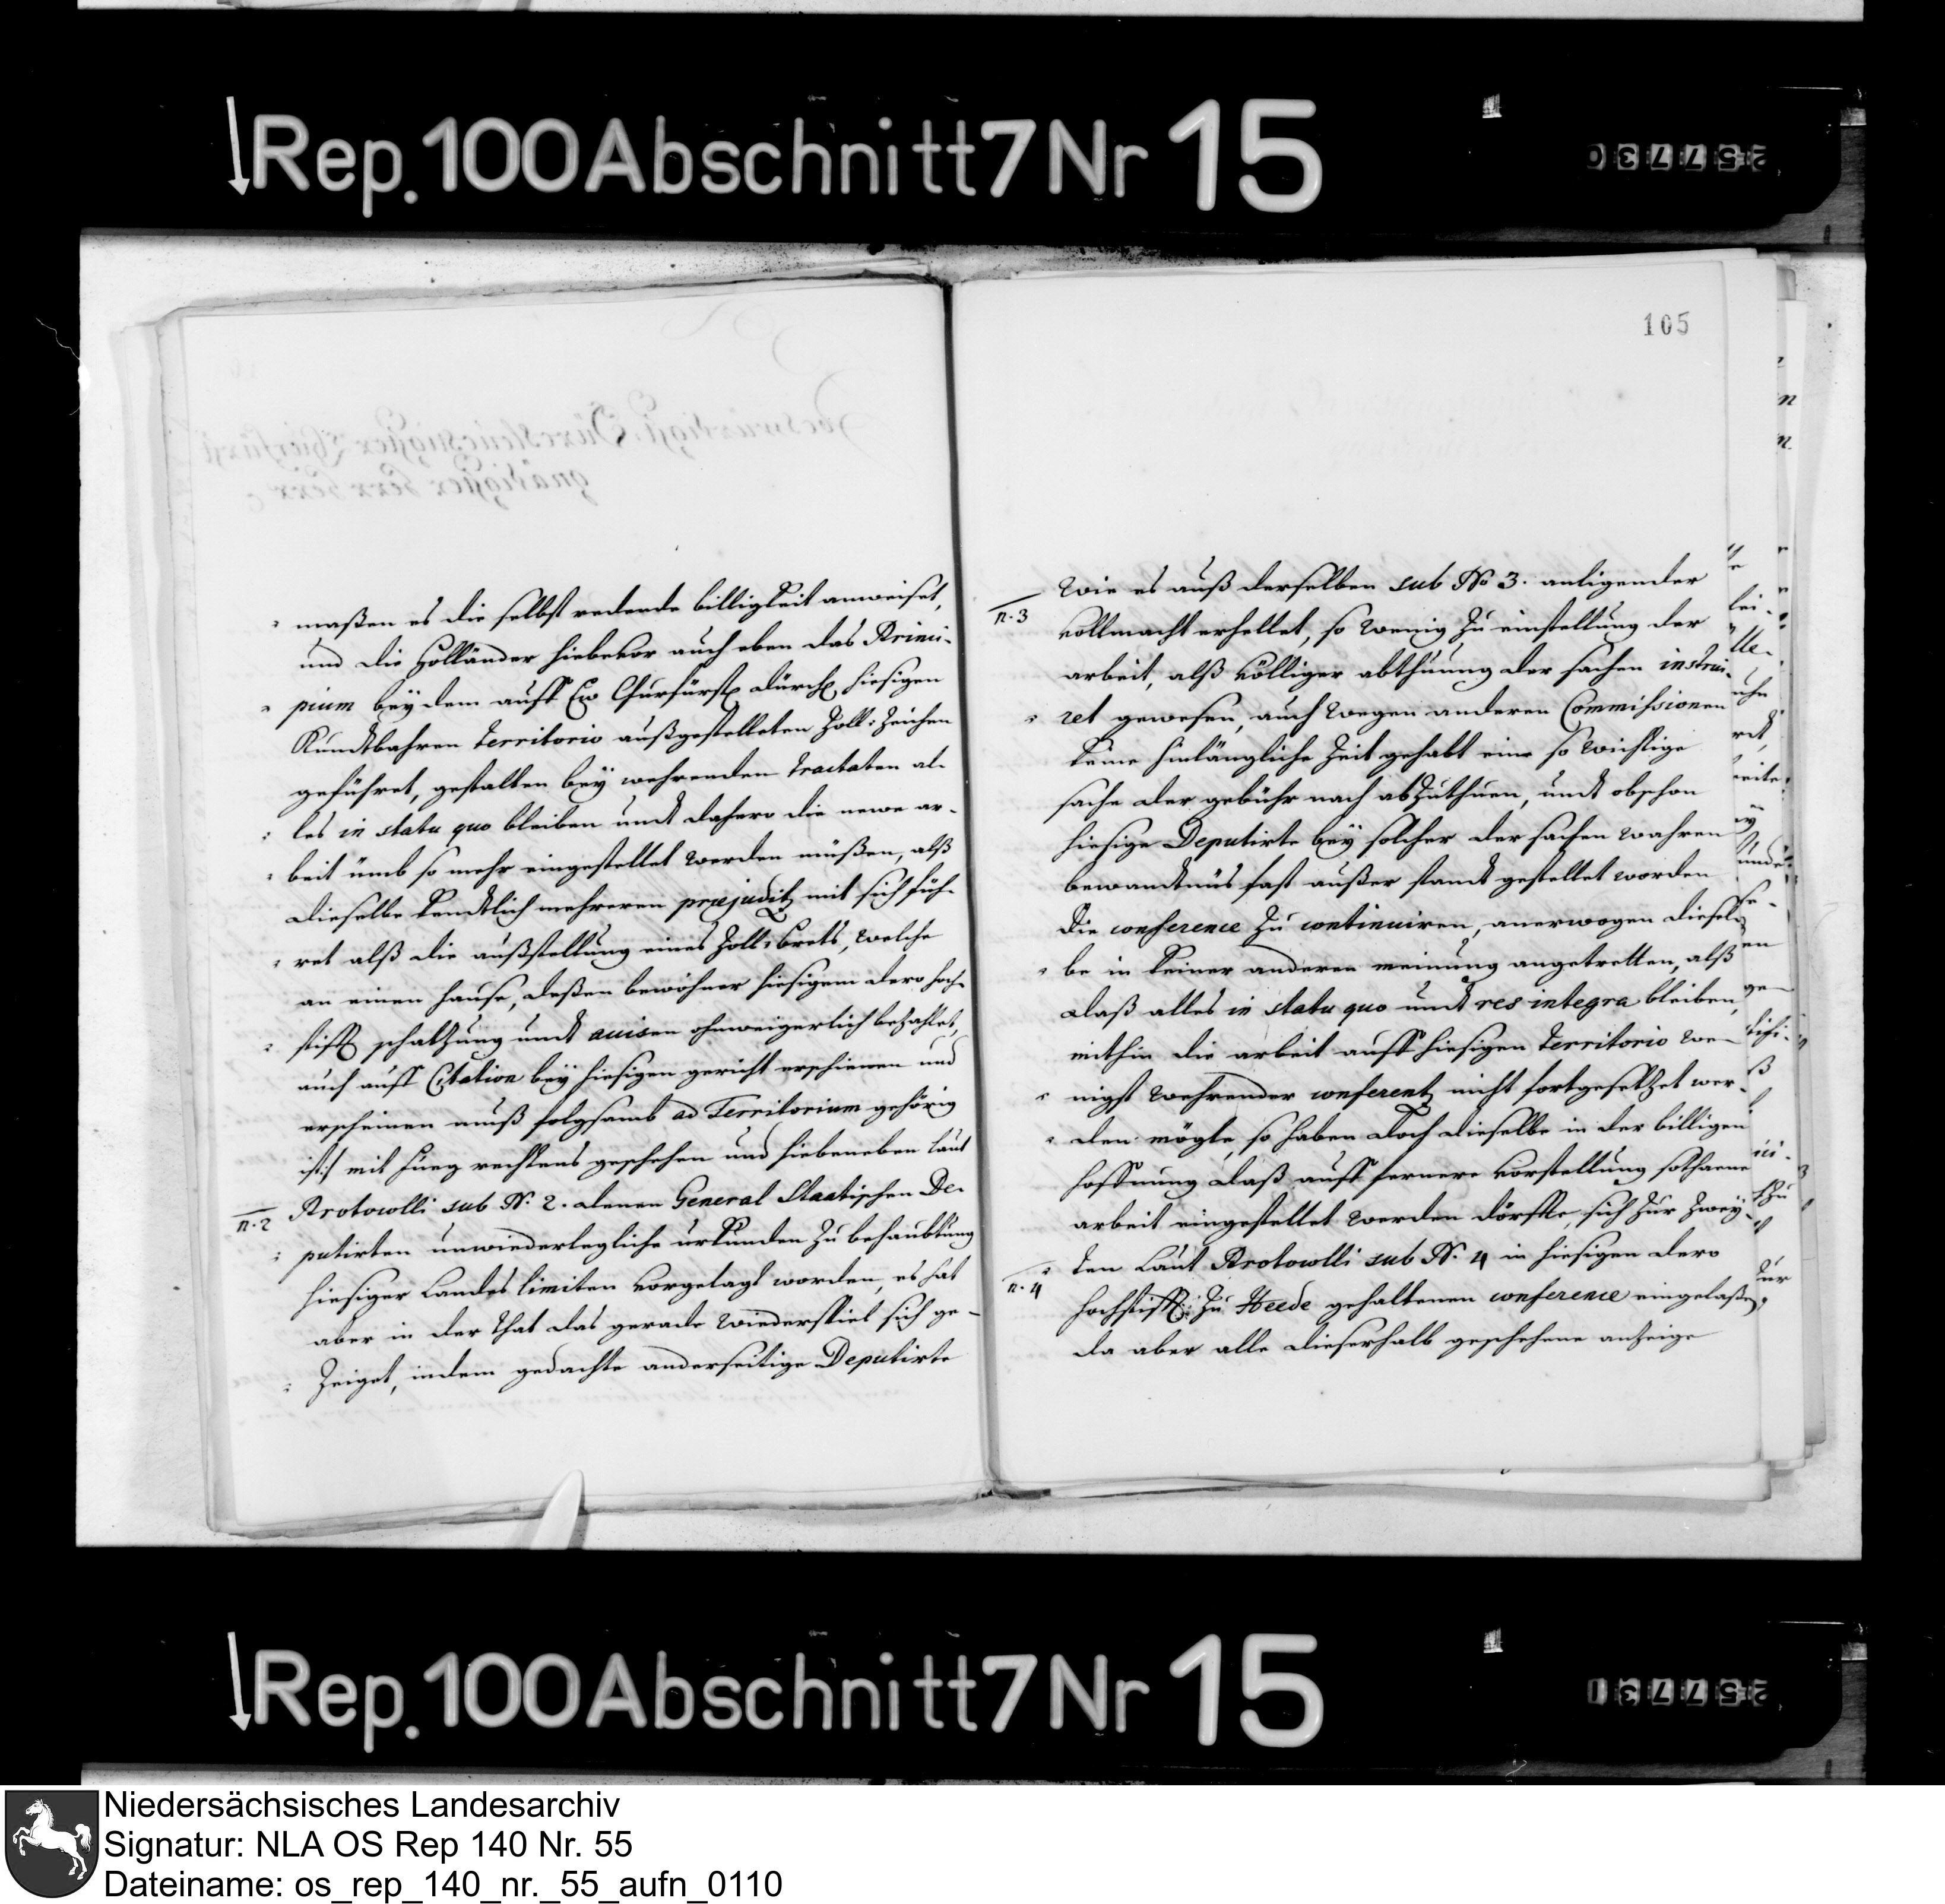 Rep. 100 Abschnitt 7 Nr 15
105
maßen es die selbst redende billigkeit anweiset,
und die Holländer hiebevor auch eben das Princi-
pium bey dem auff Ew Churfürstl dürchl hiesigen
Kundtbahren Territorio außgestelleten Zoll-Zeichen
geführet, gestalten bey wehrenden tractaten al-
les in statu quo bleiben undt dahero die newe ar-
beit ümb so mehr eingestellet werden müßen, alß
dieselbe kendtlich mehreren præjuditz mit sich füh-
ret alß die außstellung eines Zoll-brets, welche
an einen hause, deßen bewohner hiesigem dero hoch-
stifft schatzung undt accisen ohnweigerlich bezahlet,
auch auff Citation bey hiesigen gericht erschienen und
erscheinen muß folgsamb ad Territorium gehörig
ist:/ mit fueg rechtens geschehen und hiebeneben laut
n. 2
Protocolli sub N. 2. denen General Staatischen De-
putirten unwiederlegliche urkunden zu behaubtung
hiesiger Landes limiten vorgelagt worden, es hat
aber in der that das gerade wiederspiel sich ge-
zeiget, indem gedachte anderseitige Deputirte
n. 3
wie es auß derselben sub No 3. anligender
vollmacht erhellet, so wenig zu einstellung der
arbeit, alß völliger abthuung der sachen instrui-
ret gewesen, auch wegen anderen Commissionen
keine hinlängliche Zeit gehabt eine so wichtige
sache der gebühr nach abzuthuen, undt obschon
hiesige Deputirte bey solcher der sachen wahren
bewandtnüs fast außer standt gestellet worden
die conference zu continuiren, anerwogen diesel-
be in keiner anderen meinung angetretten, alß
daß alles in statu quo undt res integra bleiben,
mithin die arbeit auff hiesigen Territorio we-
nigst wehrender conferentz nicht fortgesetzet wer-
den mögte, so haben doch dieselbe in der billigen
hoffnung daß auff fernere vorstellung sothaene
arbeit eingestellet werden dörffte, sich zur zwey-
n. 4
ten laut Protocolli sub N. 4 in hiesigen dero
hochstifft zu Heede gehaltenen conference eingelaßen,
da aber alle dieserhalb geschehene anzeige
Rep. 100 Abschnitt 7 Nr 15
Niedersächsisches Landesarchiv
Signatur: NLA OS Rep 140 Nr. 55
Dateiname: os_rep_140_nr._55_aufn_0110